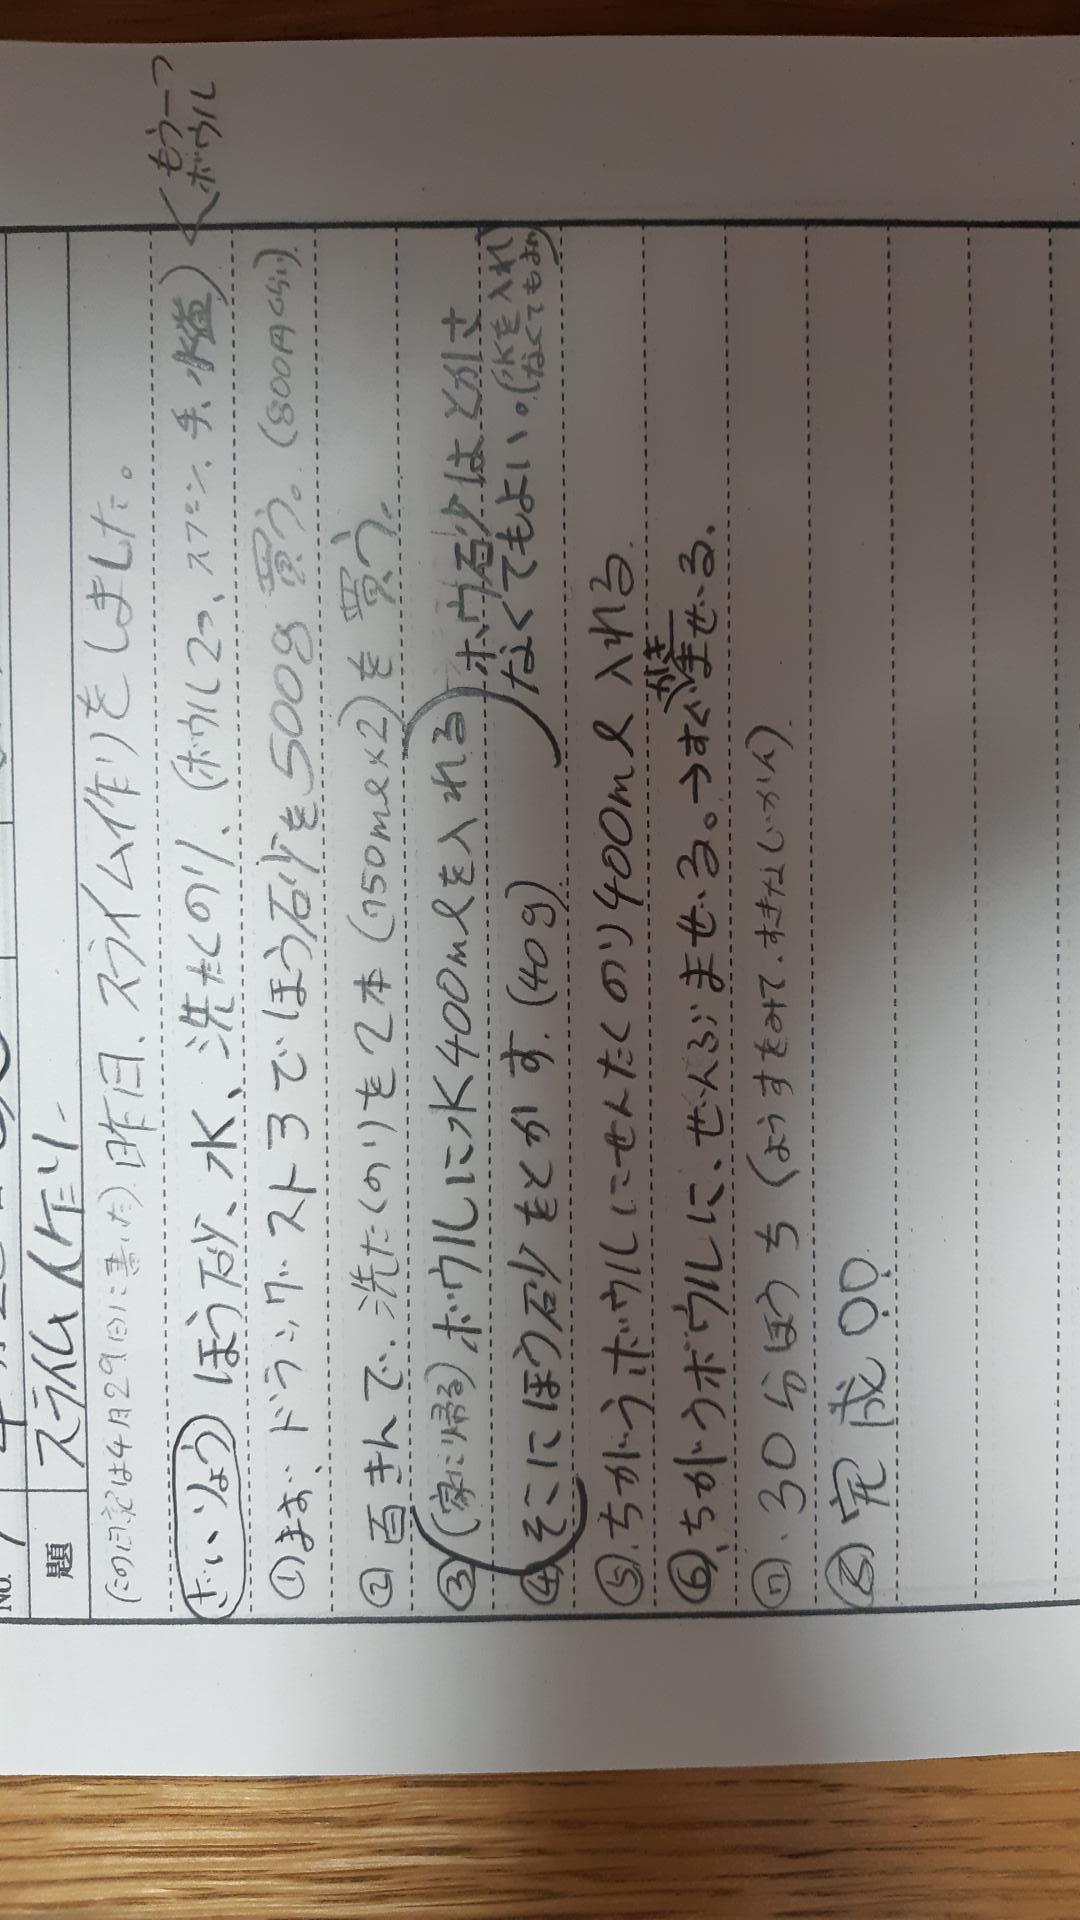 題 スライム作り
(この日記は4月29日に書いた)昨日、スライム作りをしました。
ざいりょう ほう砂、水、洗たくのり、(ボウル2つ、スプーン、手、) ←もう一つボウル
①まず、ドラッグストアでほう砂を500g買う。(800円くらい)
②百きんで、洗たくのりを2本(750ml×2)を買う。
③(家に帰る)ボウルに水400mlを入れる
④そこにほう砂をとかす.(40g)
ホウ砂はとかさなくてもよい。(水を入れなくてもよい)
⑤.ちがうボウルにせんたくのり400ml入れる.
⑥、ちがうボウルに、ぜんぶまぜる。→すぐかきまぜる.
⑦.30分ほうち(ようすをみて.すきなじかん).
⑧完成!!